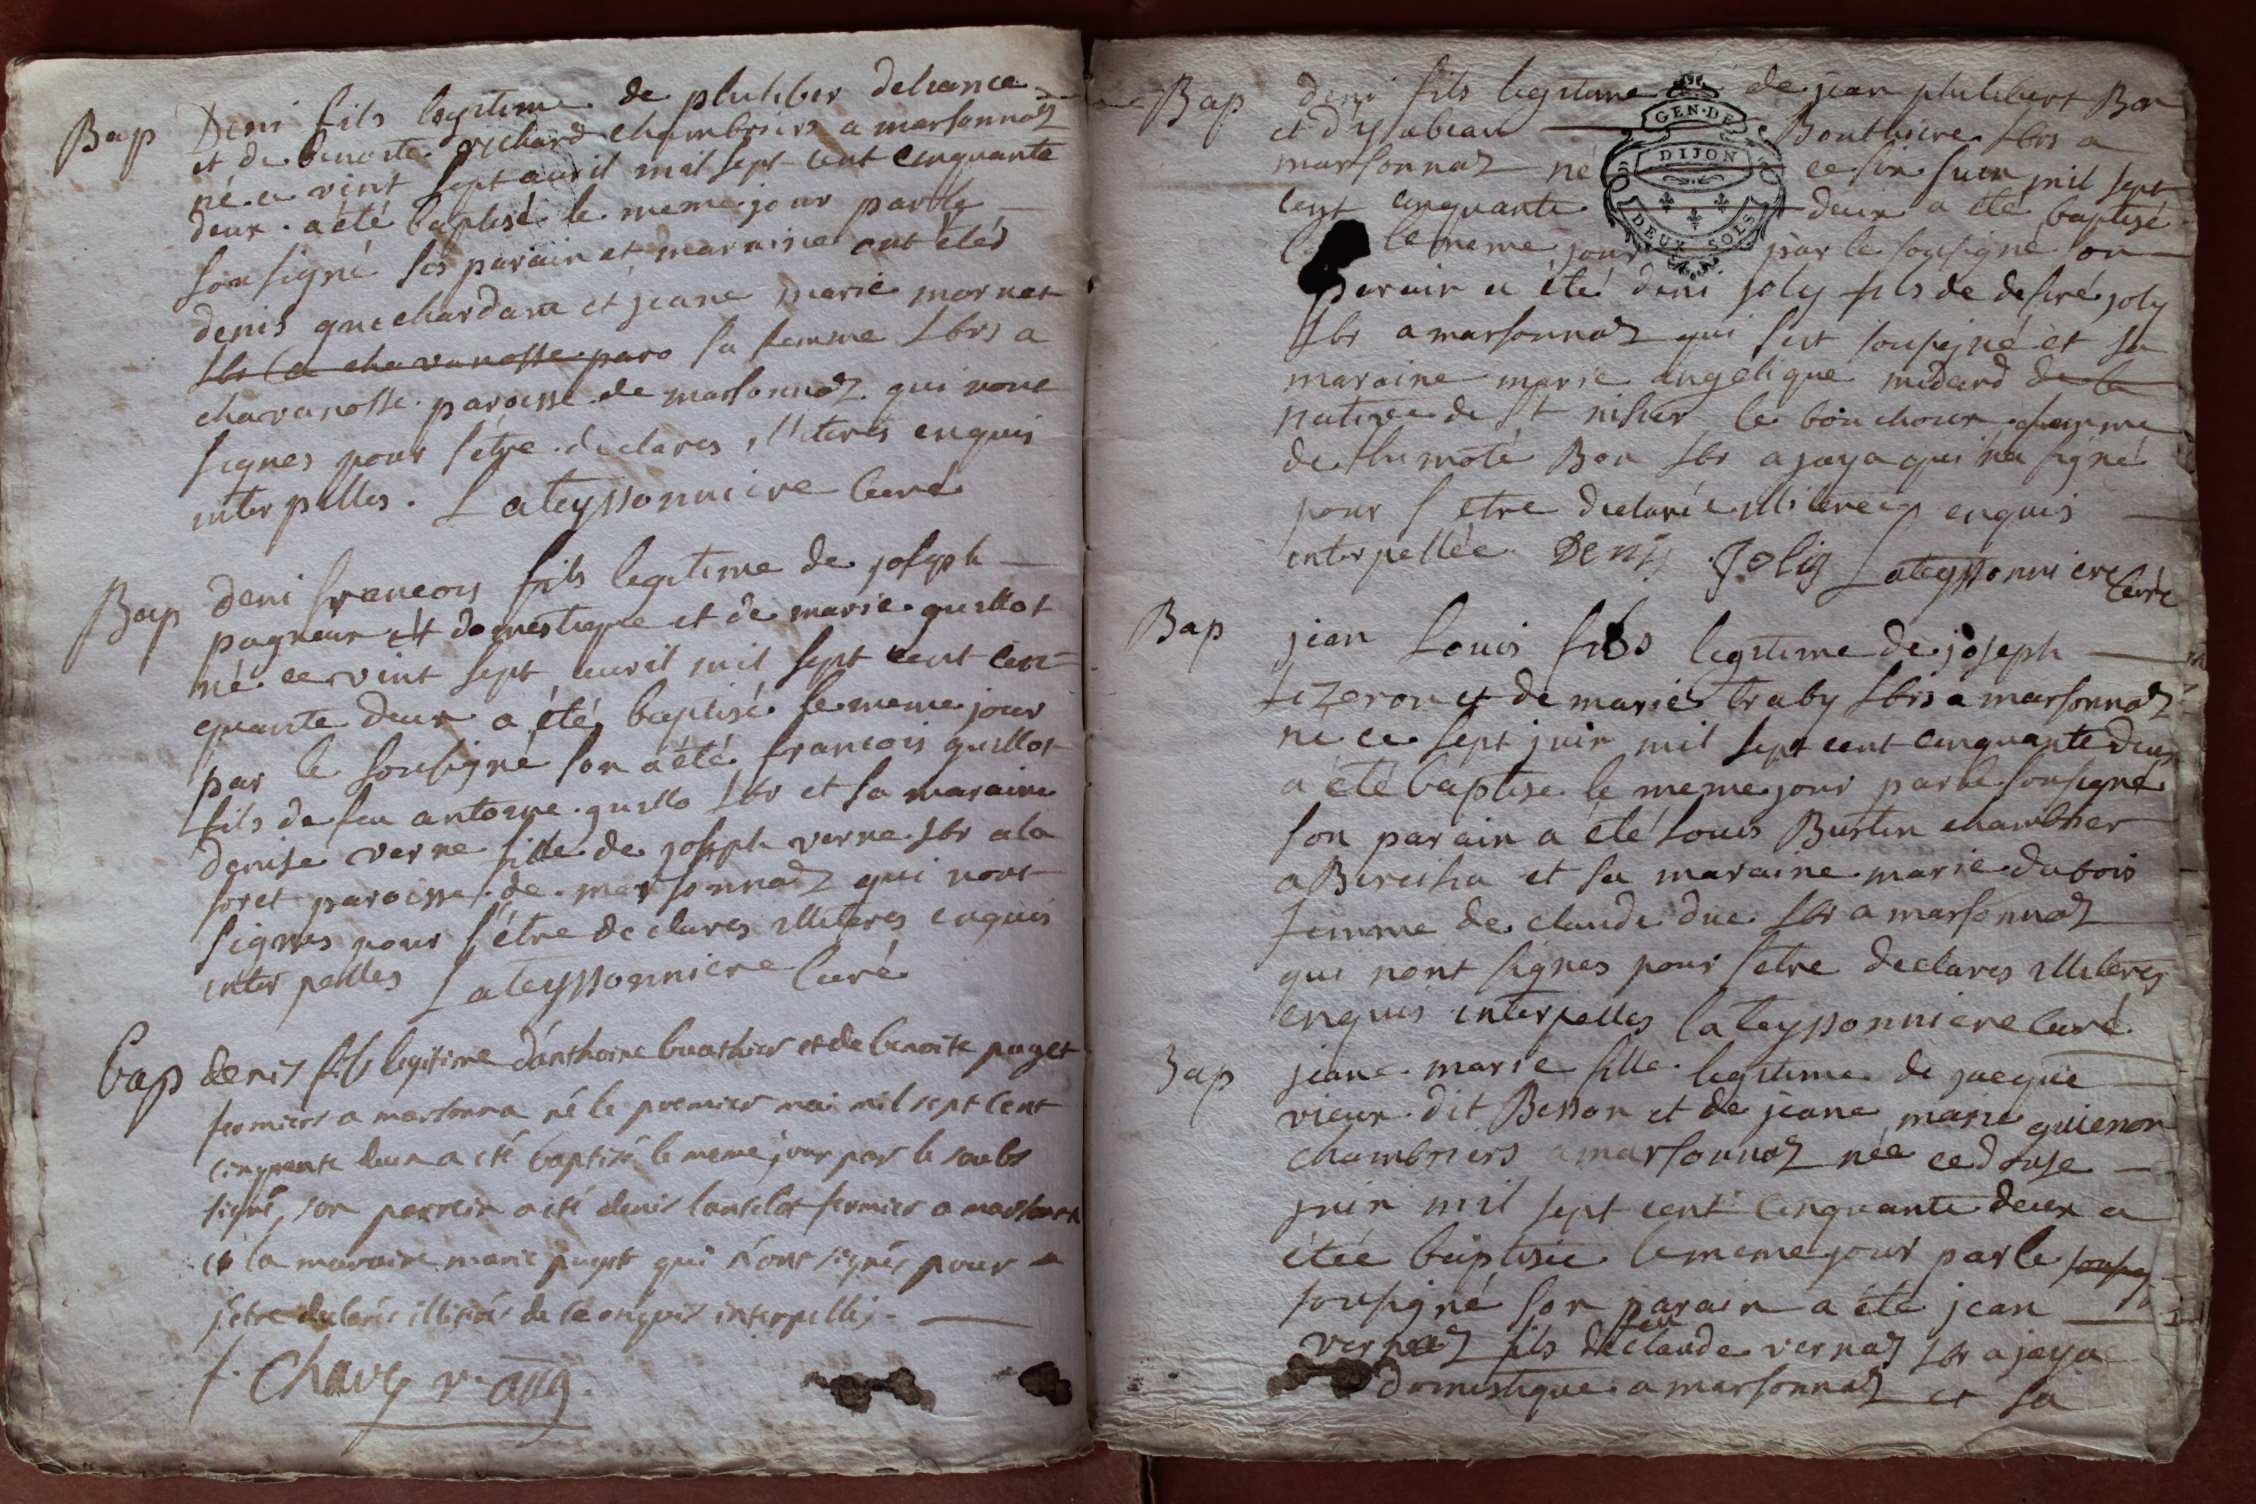 Bap Deni fils legitime de philiber defrance
et de benoite richard chambriers a marsonnaz
né ce vint sept avril mil sept cent cinquante
deux a été baptisé le meme jour par le
sousigné ses parain et maraine ont étés
denis guichardan et jeane marie mornet
lbr a chavanosse paro sa femme lbrs a
chavanosse paroisse de marsonnaz qui nont
signes pour setre declares illiteres enquis
interpelles. Lateyssonniere Curé
Bap deni francois fils legitime de joseph
pagneux et domestique et de marie guillot
né ce vint sept avril mil sept cent cin=
quante deux a été baptisé le meme jour
par le sousigné son a été francois guillot
fils de feu antoine guillo lbr et sa maraine
denise verne fille de joseph verne lbr a la
foret paroisse de marsonnaz qui nont
signes pour setre declares illiteres enquis
interpelles Lateyssonniere Curé
bap denis fils legitime d'anthoine buathier et de benoite puget
fermiers a marsonna né le premier mai mil sept cent
cinquante deux a eté baptisé le meme jour par le soubs
signé, son parrein a eté denis lanselot fermier a marsonna
et la maraine marie puget qui n'ont signés pour
s'etre declarés illiterés de ce enquis interpellés.
f. Chavy v. aug.
Bap deni fils legitime de jean philibert Bon
et d'ysabeau Bouthiere lbrs a
marsonnaz né ce six juin mil sept
cent cinquante deux a été baptisé
le meme jour par le sousigné son
parain a été deni joly fils de desiré joly
lbr a marsonnaz qui sest sousigné et sa
maraine marie angelique midard de la
native de st nisier le bouchoux femme
de thimoté Bon lbr a jaya qui na signé
pour setre declarée illiterée enquis
interpellée Denis Joliy Lateyssonniere Curé
Bap jean Louis fils legitime de joseph
Lizeron et de marie traby lbrs a marsonnaz
né ce sept juin mil sept cent cinquante deux
a été baptise le meme jour par le sousigné
son parain a été Louis Burtin chambrier
a Bereisia et sa maraine marie dubois
femme de claude duc lbr a marsonnaz
qui nont signes pour setre declares illiteres
enquis interpelles lateyssonniere Curé
Bap jeane marie fille legitime de jacque
vieux dit Besson et de jeane marie guienon
chambriers a marsonnaz née ce douse
juin mil sept cent cinquante deux a
étée baptisée le meme jour par le sousig
sousigné son parain a été jean
vernaz fils de feu claude vernaz lbr a jaya
domestique a marsonnaz et sa
GEN·DE DIJON DEUX SOLS